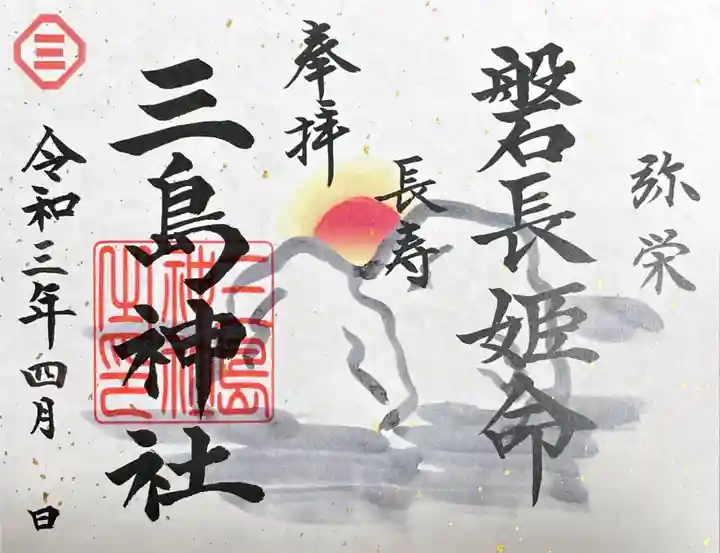 弥栄
磐長姫命
長寿
奉拝
三島神社
三
三島神社之印
令和三年四月 日